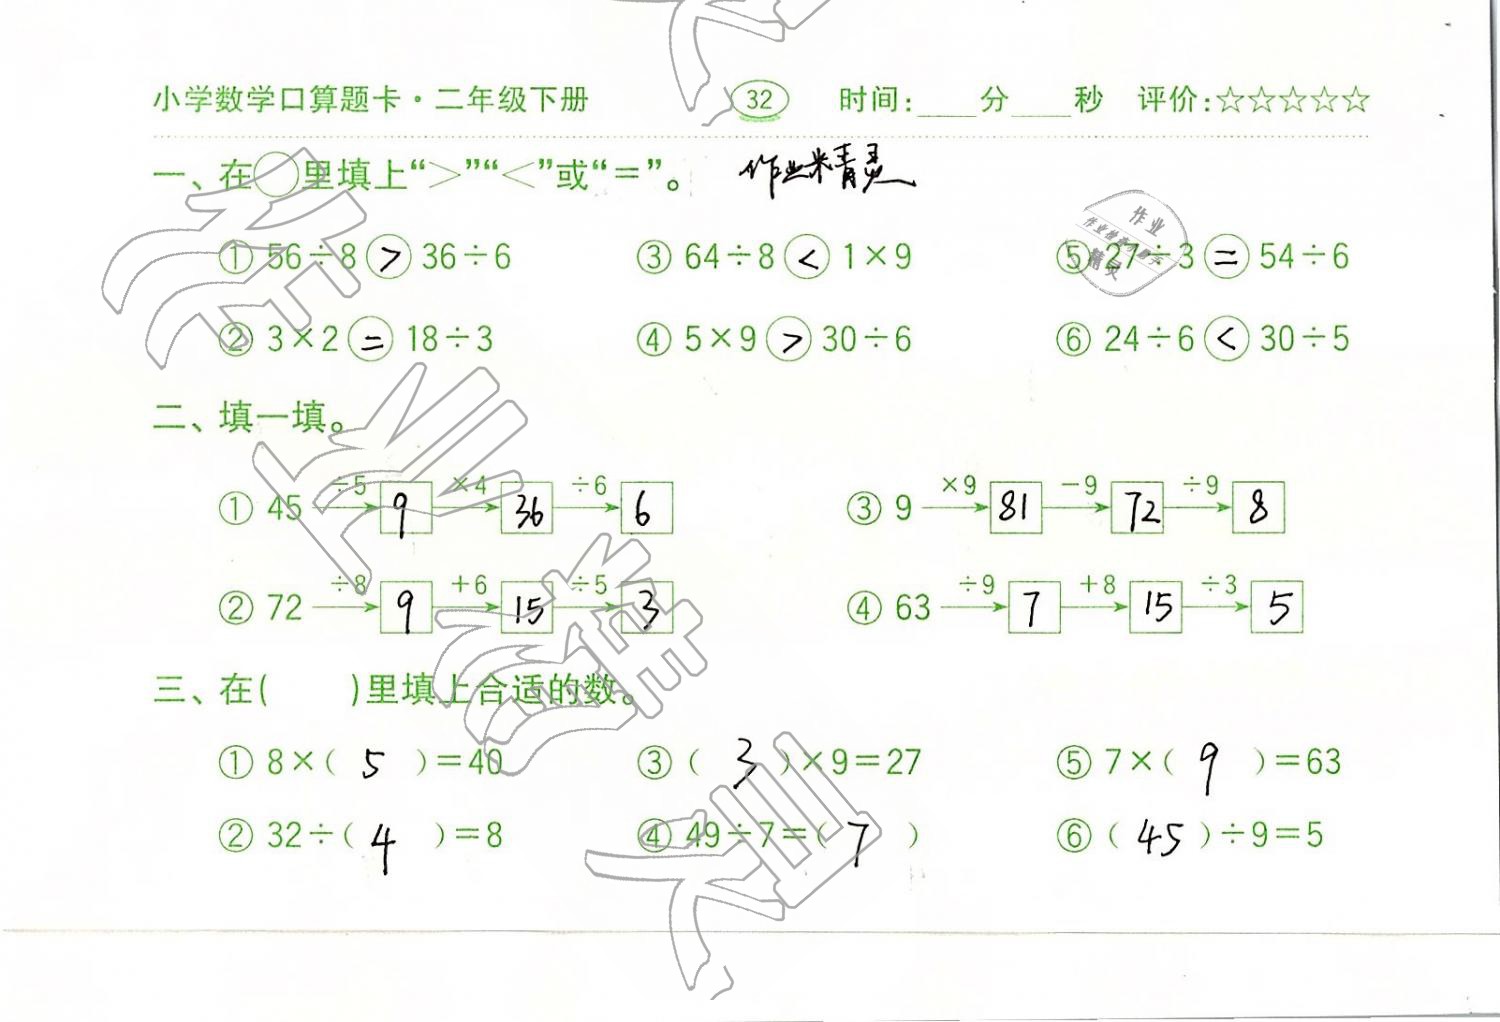 小学数学口算题卡·二年级下册 32 时间:____分____秒 评价:☆☆☆☆☆
一、在○里填上“>”“<”或“=”。 作业精灵
① 56÷8 > 36÷6 ③ 64÷8 < 1×9 ⑤ 27÷3 = 54÷6
② 3×2 = 18÷3 ④ 5×9 > 30÷6 ⑥ 24÷6 < 30÷5
作业
精灵
二、填一填。
÷5 ×4 ÷6 ×9 −9 ÷9
① 45 9 36 6 ③ 9 81 72 8
÷8 +6 ÷5 ÷9 +8 ÷3
② 72 9 15 3 ④ 63 7 15 5
三、在( )里填上合适的数。
① 8×( 5 )=40 ③ ( 3 )×9=27 ⑤ 7×( 9 )=63
② 32÷( 4 )=8 ④ 49÷7=( 7 ) ⑥ ( 45 )÷9=5